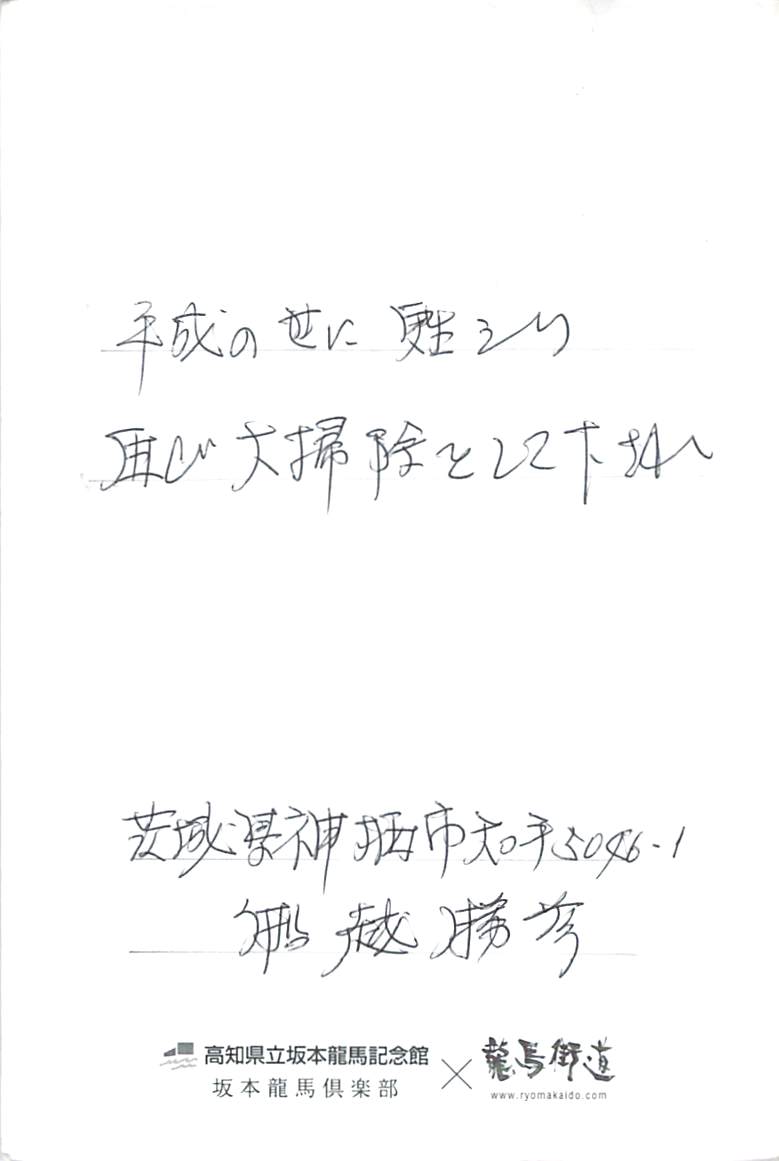 平成の世に 甦えり
再び大掃除をして下され
茨城県神栖市知手5046-1
船越勝彦
高知県立坂本龍馬記念館
坂本龍馬倶楽部
×
龍馬街道
www.ryomakaido.com